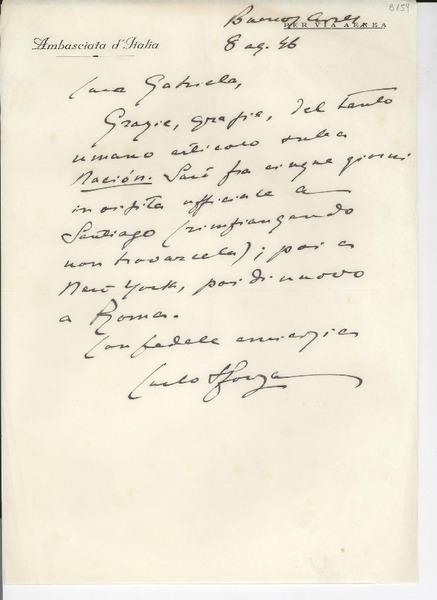 B159
Buenos Aires
PER VIA AEREA
Ambasciata d'Italia
8 ag. 46
Cara Gabriela,
Grazie, grazie, del tanto
umano articolo sulla
Nación. Sarò fra cinque giorni
in visita ufficiale a
Santiago (rimpiangendo
non trovarcela); poi a
New York, poi di nuovo
a Roma.
Con fedele amicizia
Carlo Sforza